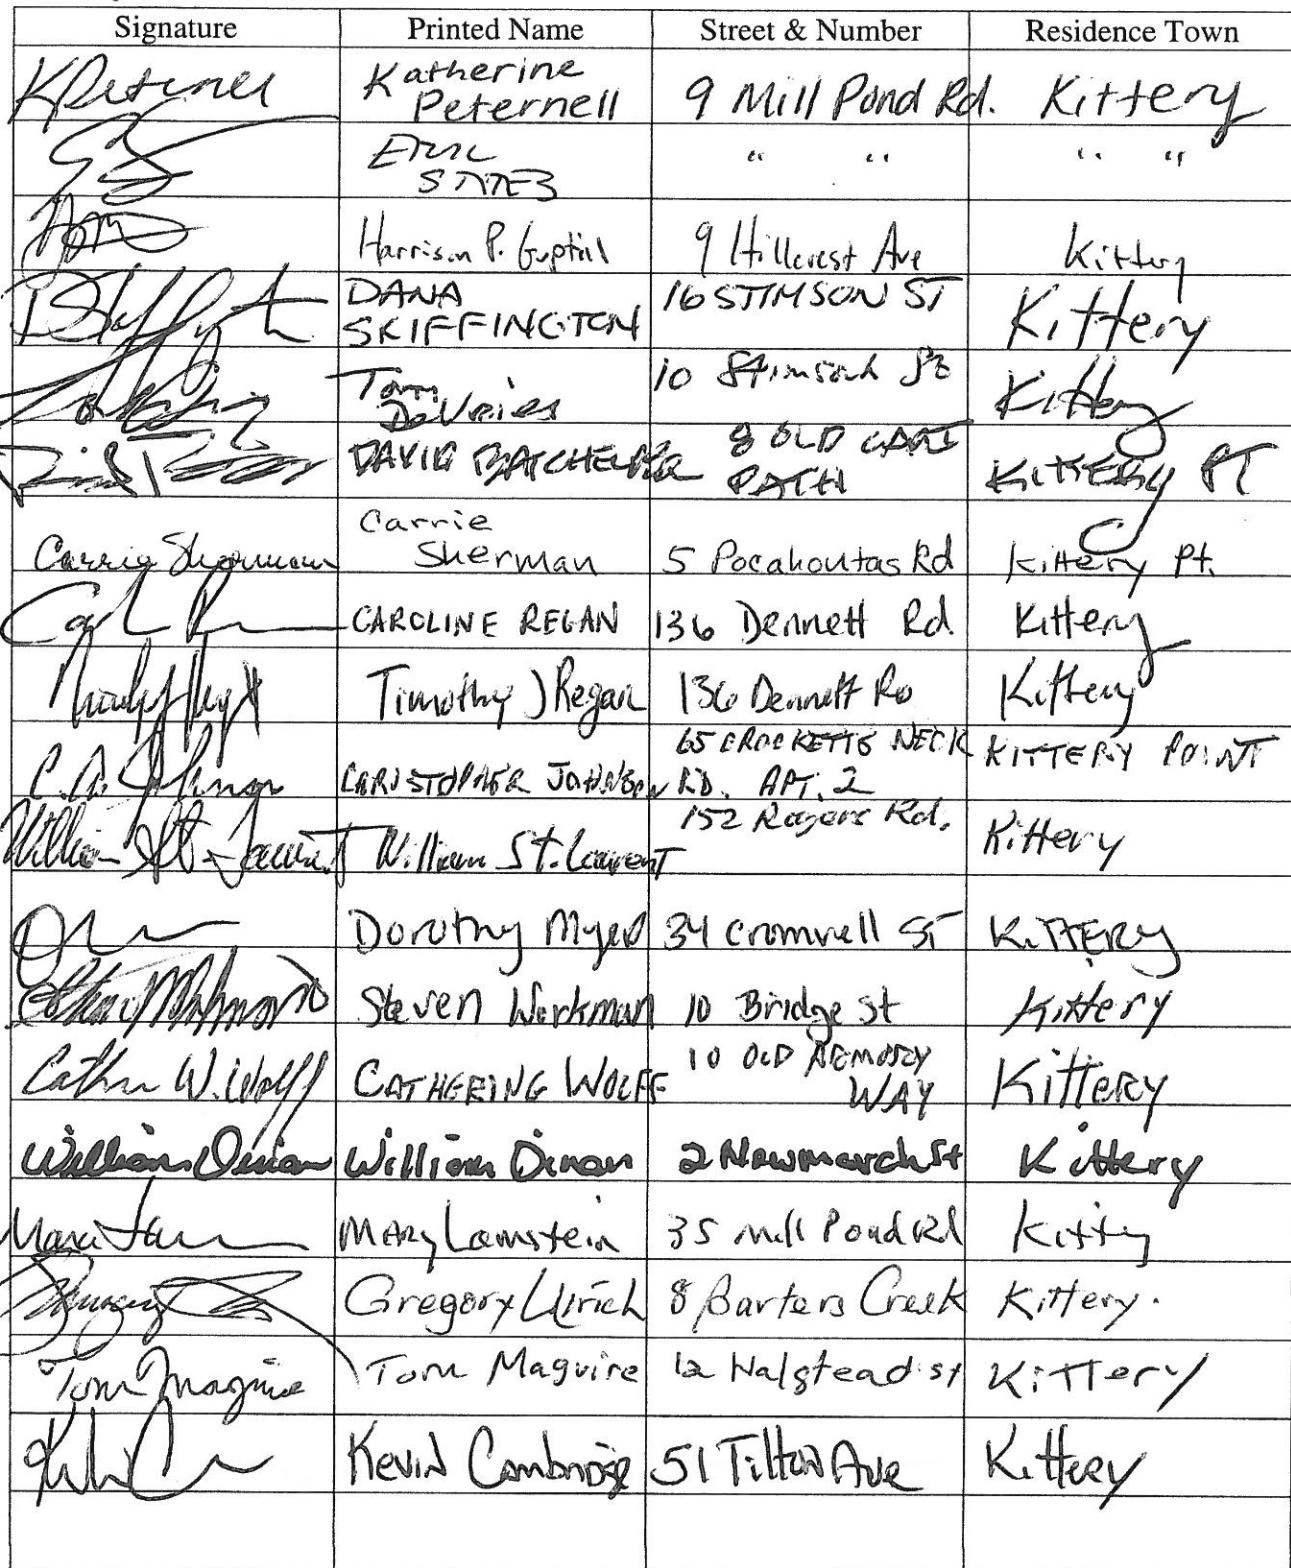 Signature Printed Name Street & Number Residence Town
KPeternell Katherine Peternell 9 Mill Pond Rd. Kittery
Eric STITES " " " "
Harrison P. Guptill 9 Hillcrest Ave Kittery
DANA SKIFFINGTON 16 STIMSON ST Kittery
Tom DeVries 10 Stimson St Kittery
DAVID BATCHELDER 8 OLD CART PATH KITTERY PT
Carrie Sherman Carrie Sherman 5 Pocahontas Rd Kittery Pt.
CAROLINE REGAN 136 Dennett Rd Kittery
Timothy J Regan 136 Dennett RD Kittery
C.A. Johnson CHRISTOPHER JOHNSON 65 CROCKETTS NECK RD. APT. 2 KITTERY POINT
William St. Laurent William St. Laurent 152 Rogers Rd. Kittery
Dorothy Myers 34 Cromwell ST KITTERY
Steven Workman 10 Bridge St Kittery
Cathn W. Wolff CATHERINE WOLFF 10 OLD ARMORY WAY Kittery
William Dinan William Dinan 2 Newmarch St Kittery
Mary Lamstein 35 Mill Pond Rd Kitty
Gregory Ulrich 8 Barters Creek Kittery.
Tom Maguire Tom Maguire 12 Halstead st Kittery
Kevin Cambridge 51 Tilton Ave Kittery